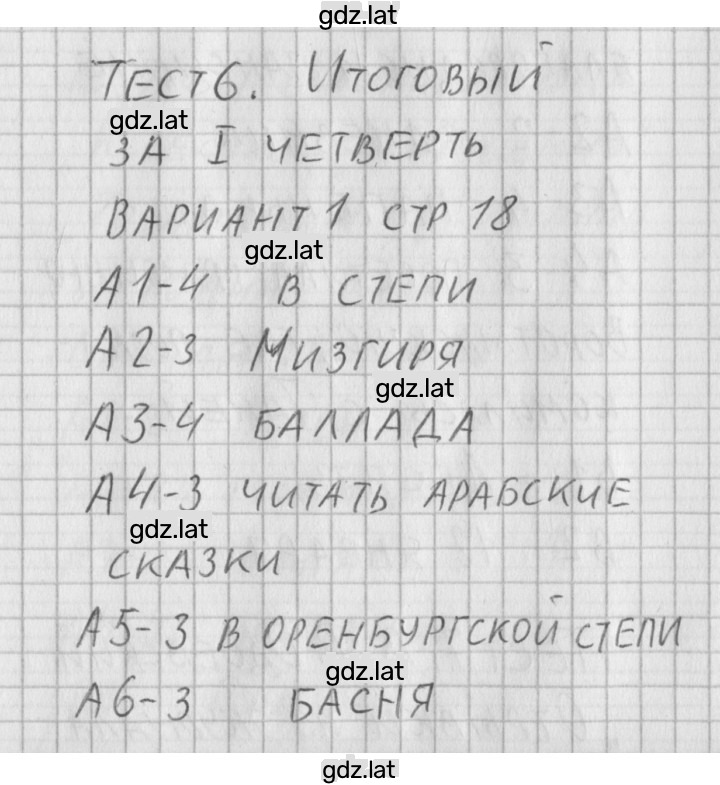 gdz.lat
ТЕСТ 6. ИТОГОВЫЙ
gdz.lat
ЗА I ЧЕТВЕРТЬ
ВАРИАНТ 1 СТР 18
gdz.lat
А1-4 В СТЕПИ
А2-3 МИЗГИРЯ
gdz.lat
А3-4 БАЛЛАДА
А4-3 ЧИТАТЬ АРАБСКИЕ
gdz.lat
СКАЗКИ
А5-3 В ОРЕНБУРГСКОЙ СТЕПИ
gdz.lat
А6-3 БАСНЯ
gdz.lat